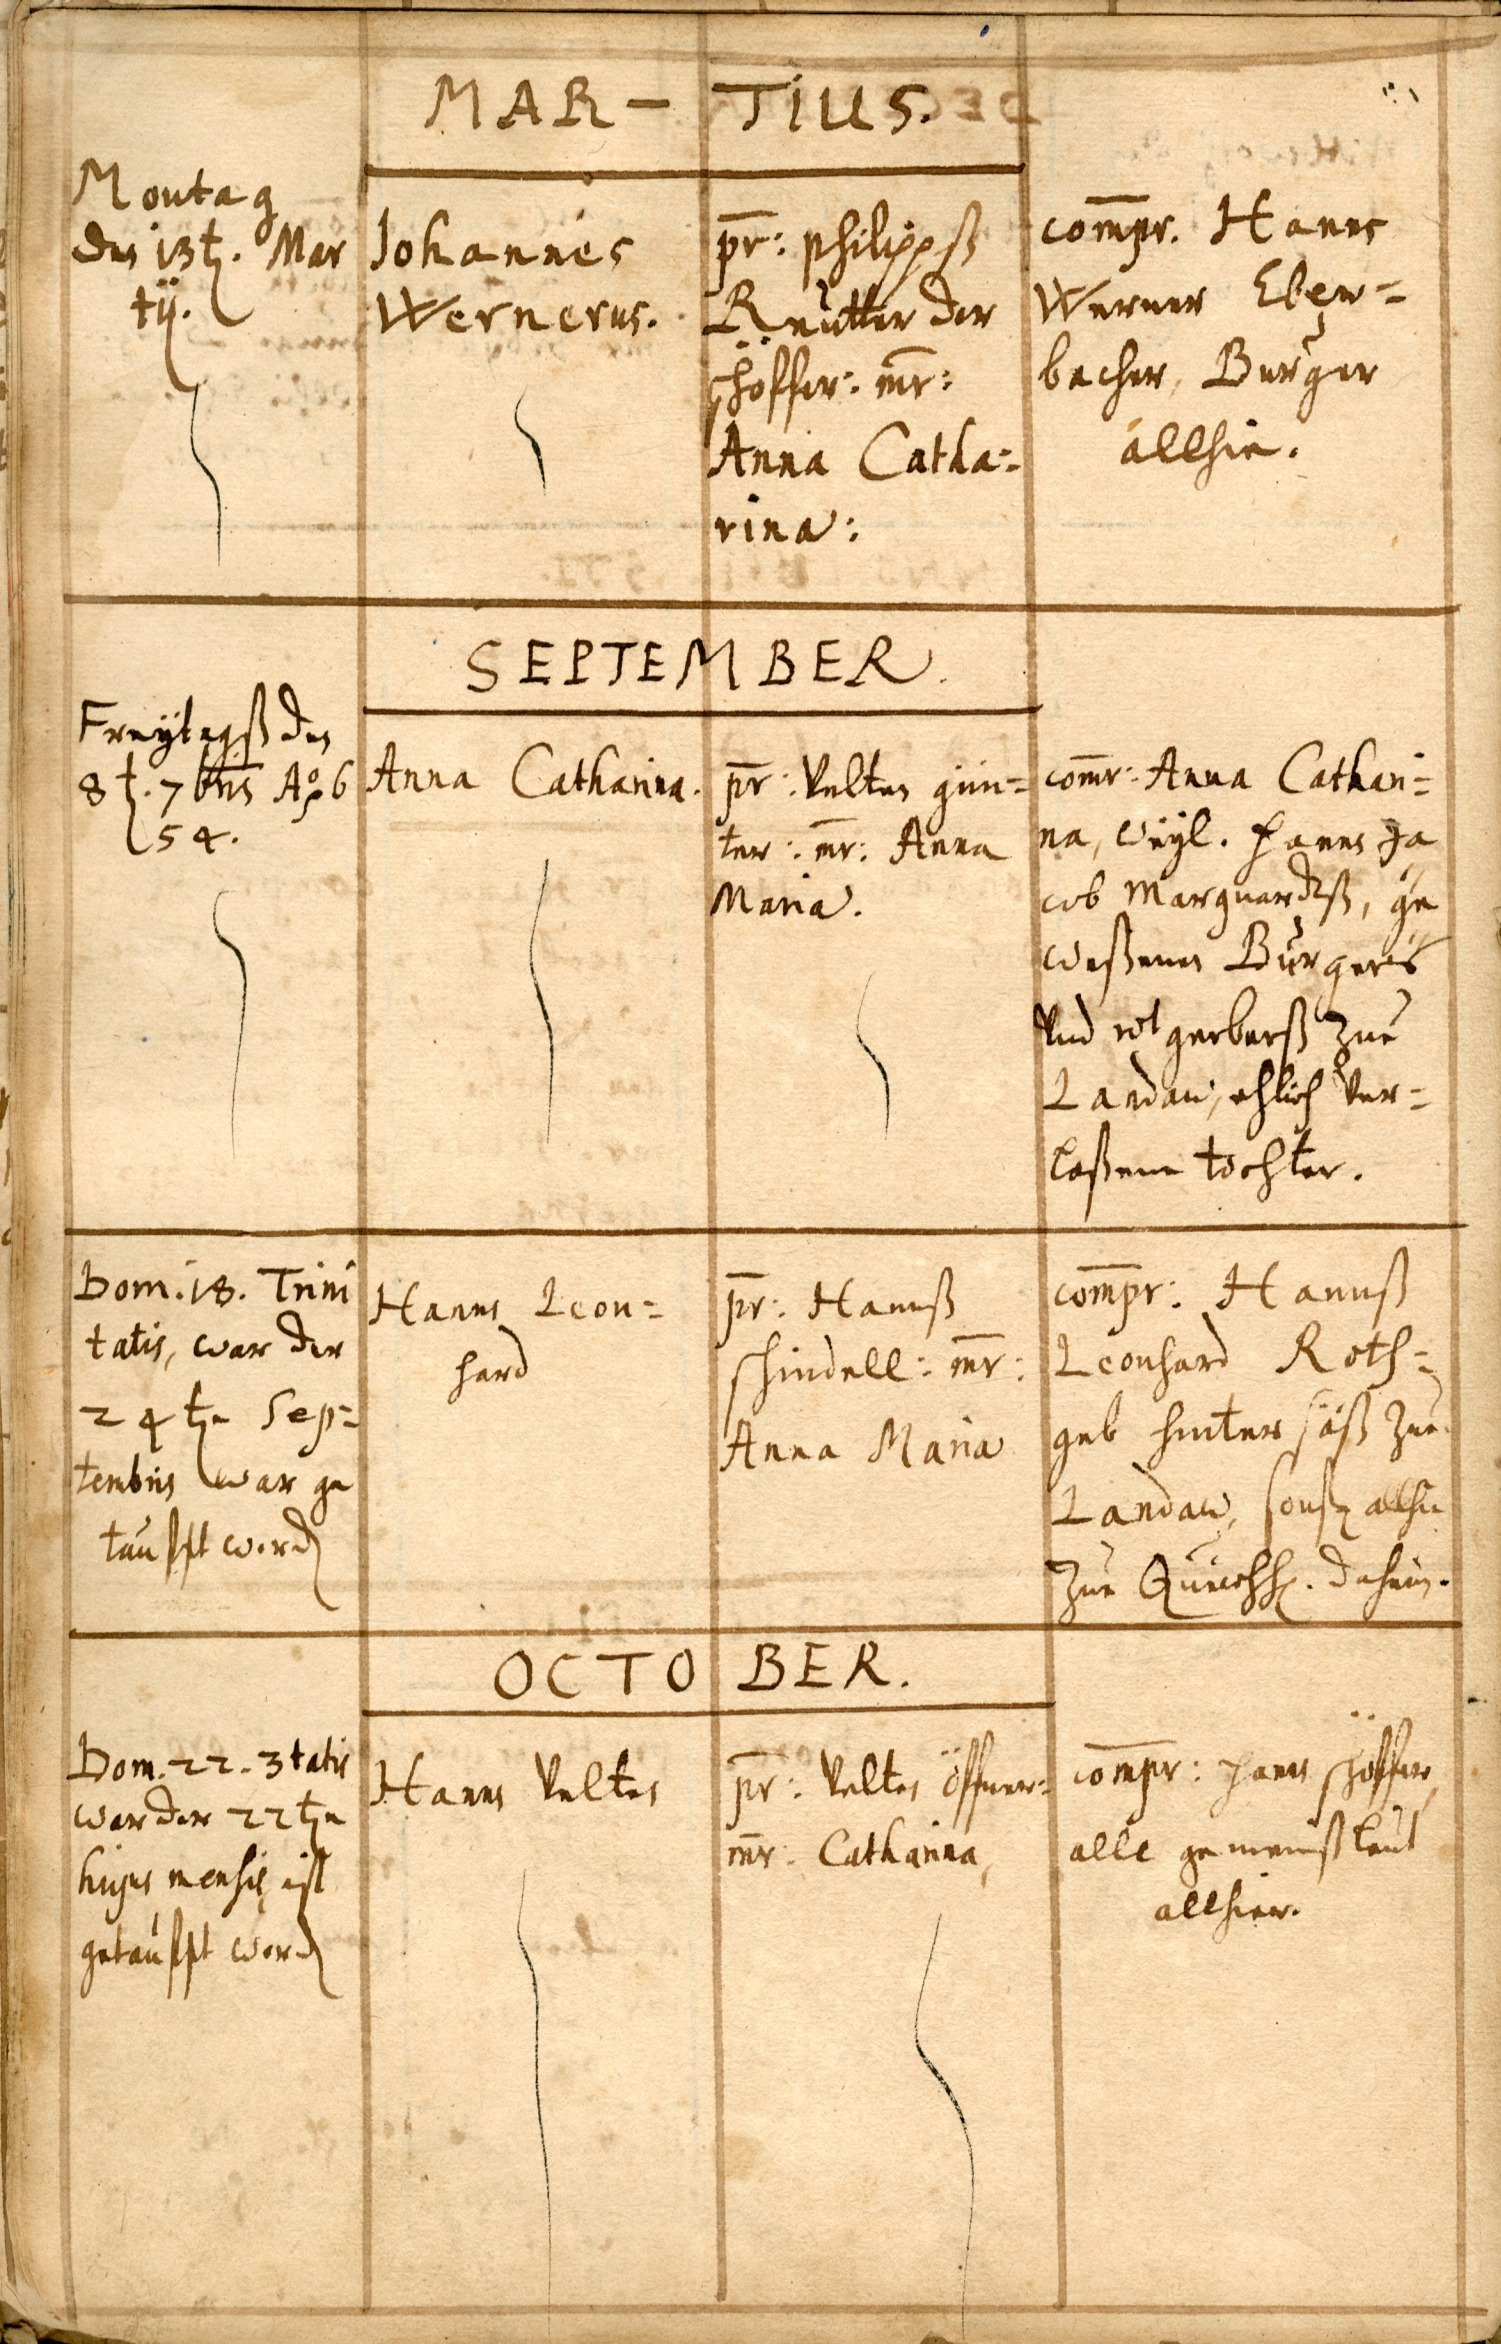 MAR – TIUS.
Montag
den 13t. Mar
tÿ.
Johannes
Wernerus.
pr: Philipps
Reütter der
schöffer: mr:
Anna Catha=
rina:
compr. Hanns
Werner Eber=
bacher, Burger
allhie.
SEPTEMBER.
Freÿtagß den
8t. 7bris Aō 6
54.
Anna Catharina.
pr: Velten gün=
ter: mr: Anna
Maria.
comr: Anna Cathari=
na, weÿl. Hanns Ja
cob Marquardtß, ge
weßenen Burgers
Vnd rotgerberß zue
Landaw, ehlich Ver=
laßene tochter.
Dom. 18. Trini
tatis, war der
24te Sep=
tembris war ge
taufft word
Hanns Leon=
hard
pr: Hannß
schindell: mr:
Anna Maria
compr: Hannß
Leonhard Roth=
geb hintersäß zue
Landaw, sonst allhie
zue Queichh. daheim.
OCTOBER.
Dom. 22. 3tatis
war der 22te
hujus mensis, ist
getaufft word
Hanns Velten
pr: Velten Öffner:
mr: Catharina,
compr: Hanns schöffer,
alle gemeinßleut
allhier.